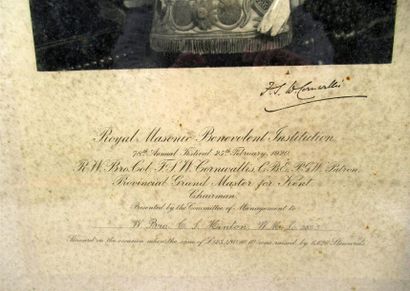 F. S. W. Cornwallis
Royal Masonic Benevolent Institution
78th Annual Festival 25th February, 1920
R. W. Bro. Col. F. S. W. Cornwallis, C.B.E. P.G.W. Patron.
Provincial Grand Master for Kent
Chairman.
Presented by the Committee of Management to
W. Bro. C. S. Hinton, W. M.
Steward on the occasion when the sum of was raised by Stewards